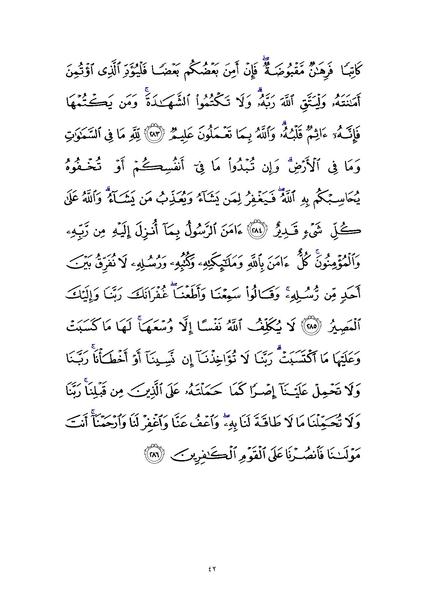 كَاتِبٗا فَرِهَٰنٞ مَّقۡبُوضَةٞۖ فَإِنۡ أَمِنَ بَعۡضُكُم بَعۡضٗا فَلۡيُؤَدِّ ٱلَّذِي ٱؤۡتُمِنَ
أَمَٰنَتَهُۥ وَلۡيَتَّقِ ٱللَّهَ رَبَّهُۥۗ وَلَا تَكۡتُمُواْ ٱلشَّهَٰدَةَۚ وَمَن يَكۡتُمۡهَا
فَإِنَّهُۥٓ ءَاثِمٞ قَلۡبُهُۥۗ وَٱللَّهُ بِمَا تَعۡمَلُونَ عَلِيمٞ ٢٨٣ لِّلَّهِ مَا فِي ٱلسَّمَٰوَٰتِ
وَمَا فِي ٱلۡأَرۡضِۗ وَإِن تُبۡدُواْ مَا فِيٓ أَنفُسِكُمۡ أَوۡ تُخۡفُوهُ
يُحَاسِبۡكُم بِهِ ٱللَّهُۖ فَيَغۡفِرُ لِمَن يَشَآءُ وَيُعَذِّبُ مَن يَشَآءُۗ وَٱللَّهُ عَلَىٰ
كُلِّ شَيۡءٖ قَدِيرٌ ٢٨٤ ءَامَنَ ٱلرَّسُولُ بِمَآ أُنزِلَ إِلَيۡهِ مِن رَّبِّهِۦ
وَٱلۡمُؤۡمِنُونَۚ كُلٌّ ءَامَنَ بِٱللَّهِ وَمَلَٰٓئِكَتِهِۦ وَكُتُبِهِۦ وَرُسُلِهِۦ لَا نُفَرِّقُ بَيۡنَ
أَحَدٖ مِّن رُّسُلِهِۦۚ وَقَالُواْ سَمِعۡنَا وَأَطَعۡنَاۖ غُفۡرَانَكَ رَبَّنَا وَإِلَيۡكَ
ٱلۡمَصِيرُ ٢٨٥ لَا يُكَلِّفُ ٱللَّهُ نَفۡسًا إِلَّا وُسۡعَهَاۚ لَهَا مَا كَسَبَتۡ
وَعَلَيۡهَا مَا ٱكۡتَسَبَتۡۗ رَبَّنَا لَا تُؤَاخِذۡنَآ إِن نَّسِينَآ أَوۡ أَخۡطَأۡنَاۚ رَبَّنَا
وَلَا تَحۡمِلۡ عَلَيۡنَآ إِصۡرٗا كَمَا حَمَلۡتَهُۥ عَلَى ٱلَّذِينَ مِن قَبۡلِنَاۚ رَبَّنَا
وَلَا تُحَمِّلۡنَا مَا لَا طَاقَةَ لَنَا بِهِۦۖ وَٱعۡفُ عَنَّا وَٱغۡفِرۡ لَنَا وَٱرۡحَمۡنَآۚ أَنتَ
مَوۡلَىٰنَا فَٱنصُرۡنَا عَلَى ٱلۡقَوۡمِ ٱلۡكَٰفِرِينَ ٢٨٦
٤٢